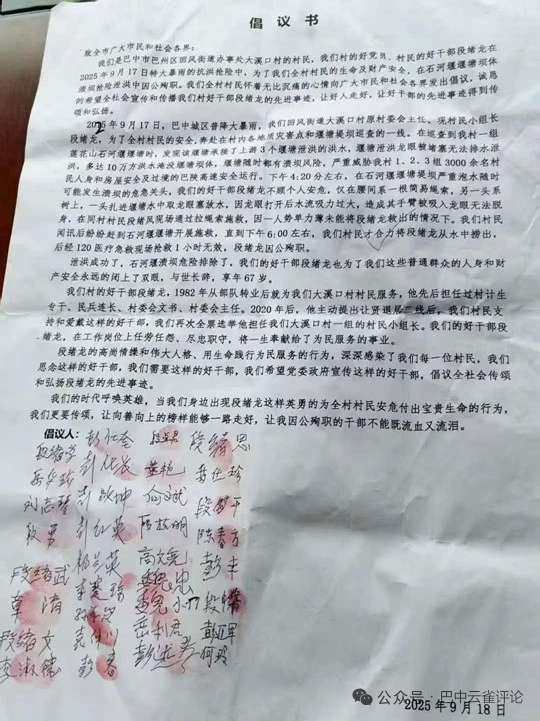 倡议书
致全市广大市民和社会各界：
我们是巴中市巴州区回风街道办事处大溪口村的村民，我们村的好党员、村民的好干部段绪龙在
2025年9月17日特大暴雨的抗洪抢险中，为了我们全村村民的生命及财产安全，在石河堰堰塘坝体
溃坝抢险泄洪中因公殉职。我们全村村民怀着无比沉痛的心情向广大市民和社会各界发出倡议，诚恳
的希望全社会宣传和传播我们村好干部段绪龙的先进事迹，让好人走好，让好干部的先进事迹得到传
颂和弘扬。
2025年9月17日，巴中城区普降大暴雨，我们回风街道大溪口村原村委会主任、现村民小组长
段绪龙，为了全村村民的安全，奔赴在村内各地质灾害点和堰塘堤坝巡查的一线。在巡查到我村一组
莲花山石河堰堰塘时，发现该堰塘承接了上游3个堰塘泄洪的洪水，堰塘泄洪龙眼被堵塞无法排水泄
洪，多达10万方洪水淹没堰塘坝体，堰塘随时都有溃坝风险，严重威胁我村1、2、3组3000余名村
民人身和房屋安全及过境的巴陕高速安全运行。下午4:20分左右，在石河堰堰塘堤坝严重泡水随时
可能发生溃坝的危急关头，我们的好干部段绪龙不顾个人安危，仅在腰间系一根简易绳索，另一头系
树上，一头扎进堰塘水中取龙眼塞放水，因龙眼打开后水流吸力过大，造成其手臂被吸入龙眼无法脱
身，在同村村民段绪风现场通过拉绳索施救，因一人势单力薄未能将段绪龙救出的情况下。我们村民
闻讯后纷纷赶到石河堰堰塘开展施救，直到下午6:00左右，我们村民才合力将段绪龙从水中捞出，
后经120医疗急救现场抢救1小时无效，段绪龙因公殉职。
泄洪成功了，石河堰溃坝危险排除了，我们的好干部段绪龙也为了我们这些普通群众的人身和财
产安全永远的闭上了双眼，与世长辞，享年67岁。
我们村的好干部段绪龙，1982年从部队转业后就为我们大溪口村村民服务，他先后担任过村计生
专干、民兵连长、村委会文书、村委会主任。2020年后，他主动提出让贤退居二线后，我们村民支
持和爱戴这样的好干部，我们再次全票选举他担任我们大溪口村一组的村民小组长。我们的好干部段绪
龙，在工作岗位上任劳任怨、尽忠职守，将一生奉献给了为民服务的事业。
段绪龙的高尚情操和伟大人格、用生命践行为民服务的行为，深深感染了我们每一位村民，我们
思念这样的好干部，我们需要这样的好干部，我们希望党委政府宣传这样的好干部，倡议全社会传颂
和弘扬段绪龙的先进事迹。
我们的时代呼唤英雄，当我们身边出现段绪龙这样英勇的为全村村民安危付出宝贵生命的行为，
我们更要传颂，让向善向上的榜样能够一路走好，让我因公殉职的干部不能既流血又流泪。
倡议人：
段绪恩
段绪武
段绪文
彭春
2025年9月18日
公众号：巴中云雀评论